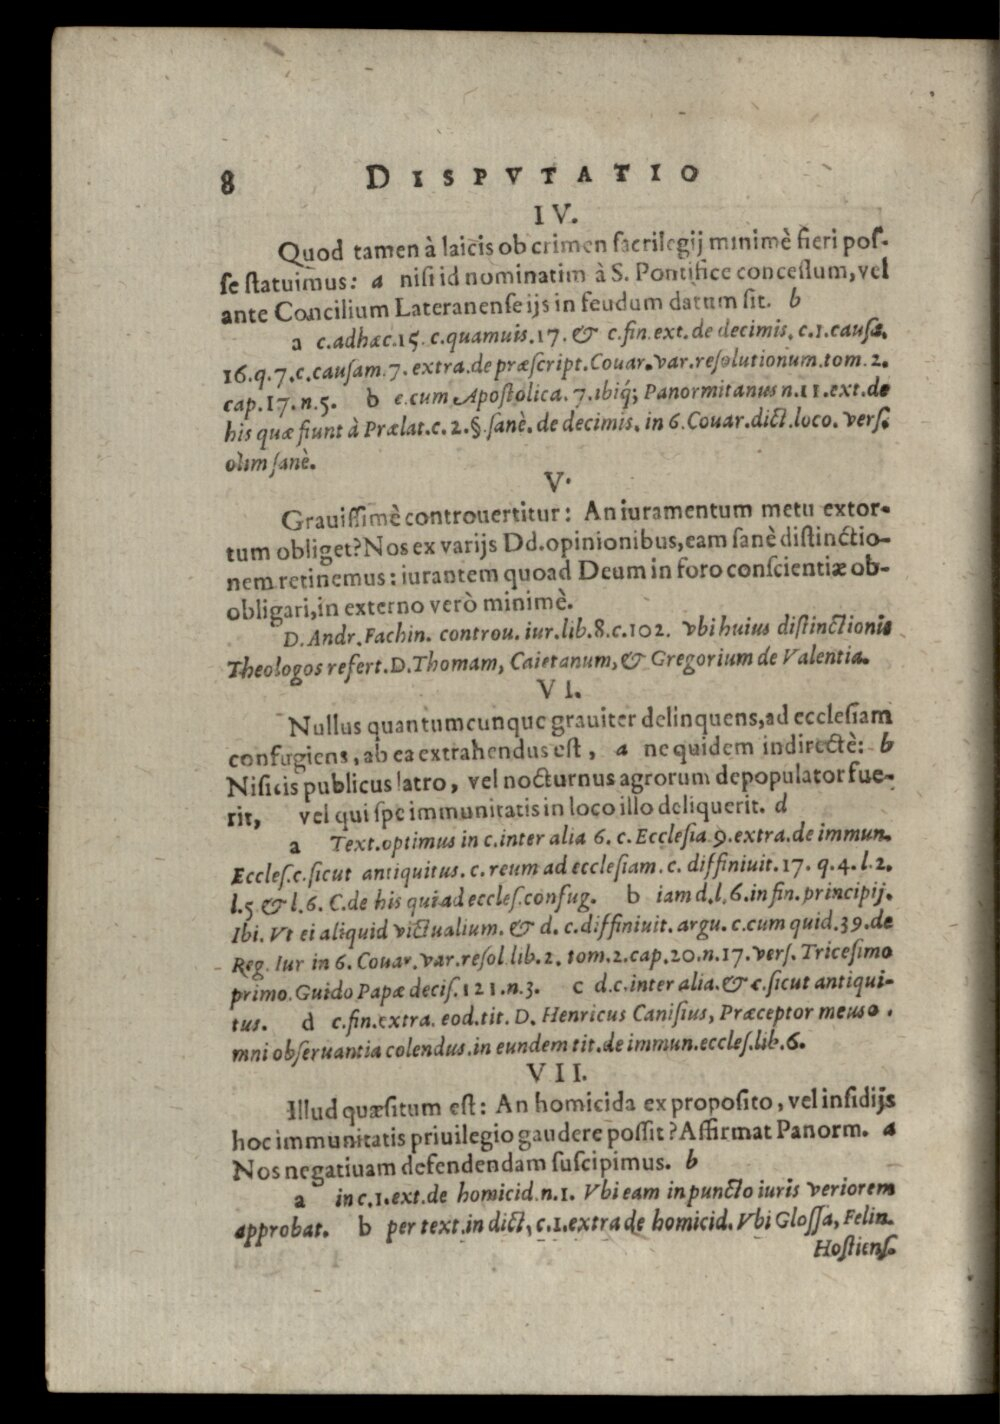 8 DISPVTATIO
IV.
Quod tamen à laicis ob crimen sacrilegij minimè fieri pos-
se statuimus: a nisi id nominatim à S. Pontifice concessum, vel
ante Concilium Lateranense ijs in feudum datum sit. b
a c. adhæc. 15. c. quamuis. 17. & c. fin. ext. de decimis. c. 1. causa.
16. q. 7. c. causam. 7. extra. de præscript. Couar. var. resolutionum. tom. 2.
cap. 17. n. 5. b e. cum Apostolica. 7. ibiq́; Panormitanus n. 11. ext. de
his quæ fiunt à Prælat. c. 2. §. sanè. de decimis. in 6. Couar. dict. loco. vers.
olim sanè.
V.
Grauissimè controuertitur: An iuramentum metu extor-
tum obliget? Nos ex varijs Dd. opinionibus, eam sanè distinctio-
nem retinemus: iurantem quoad Deum in foro conscientiæ ob-
obligari, in externo verò minimè.
D. Andr. Fachin. controu. iur. lib. 8. c. 102. vbi huius distinctionis
Theologos refert. D. Thomam, Caietanum, & Gregorium de Valentia.
VI.
Nullus quantumcunque grauiter delinquens, ad ecclesiam
confugiens, ab ea extrahendus est, a ne quidem indirectè: b
Nisi is publicus latro, vel nocturnus agrorum depopulator fue-
rit, vel qui spe immunitatis in loco illo deliquerit. d
a Text. optimus in c. inter alia 6. c. Ecclesia 9. extra. de immun.
Eccles. c. sicut antiquitus. c. reum ad ecclesiam. c. diffiniuit. 17. q. 4. l. 2.
l. 5 & l. 6. C. de his qui ad eccles. confug. b iam d. l. 6. in fin. principij.
Ibi. Vt ei aliquid victualium. & d. c. diffiniuit. argu. c. cum quid. 39. de
Reg. Iur in 6. Couar. var. resol. lib. 2. tom. 2. cap. 20. n. 17. vers. Tricesimo
primo. Guido Papæ decis. 121. n. 3. c d. c. inter alia. & c. sicut antiqui-
tus. d c. fin. extra. eod. tit. D. Henricus Canisius, Præceptor meus o.
mni obseruantia colendus. in eundem tit. de immun. eccles. lib. 6.
VII.
Illud quæsitum est: An homicida ex proposito, vel insidijs
hoc immunitatis priuilegio gaudere possit? Affirmat Panorm. a
Nos negatiuam defendendam suscipimus. b
a in c. 1. ext. de homicid. n. 1. Vbi eam in puncto iuris veriorem
approbat. b per text. in dict, c. 1. extra de homicid. Vbi Glossa, Felin.
Hostiens.